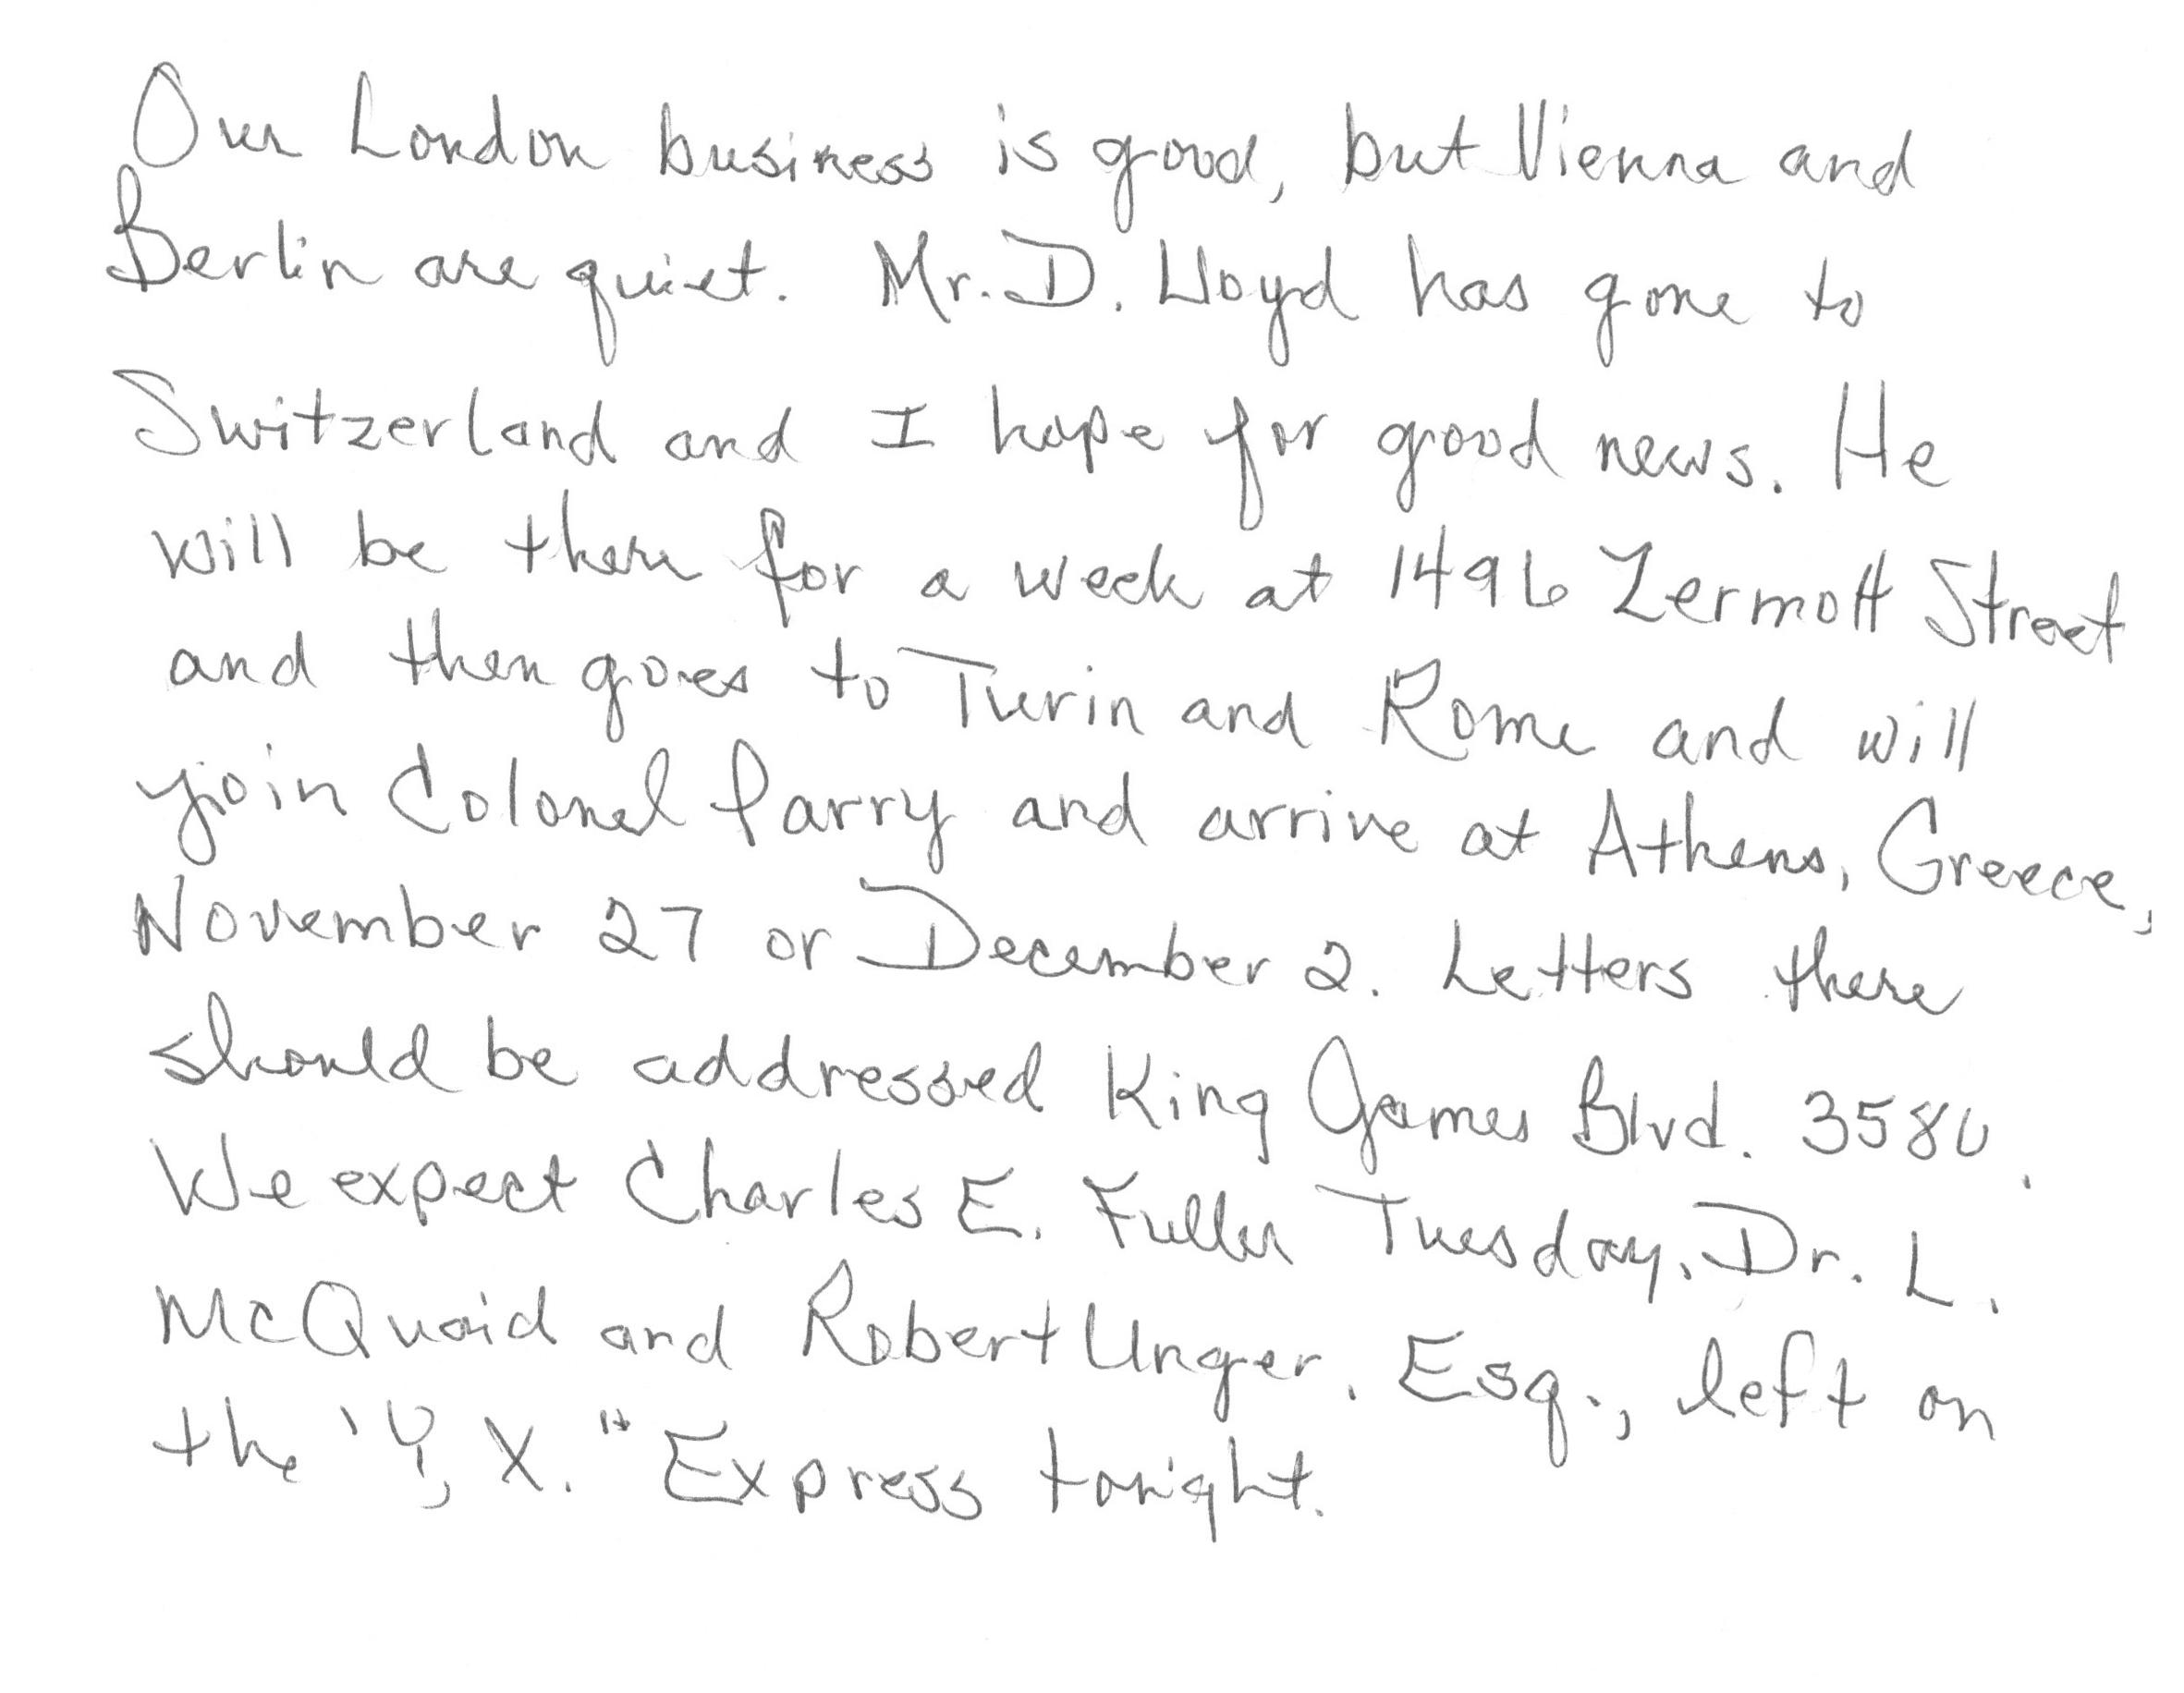 Our London business is good, but Vienna and
Berlin are quiet. Mr. D. Lloyd has gone to
Switzerland and I hope for good news. He
will be there for a week at 1496 Zermott Street
and then goes to Turin and Rome and will
join Colonel Parry and arrive at Athens, Greece,
November 27 or December 2. Letters there
should be addressed King James Blvd. 3580.
We expect Charles E. Fuller Tuesday. Dr. L.
McQuaid and Robert Unger, Esq., left on
the "Y, X." Express tonight.